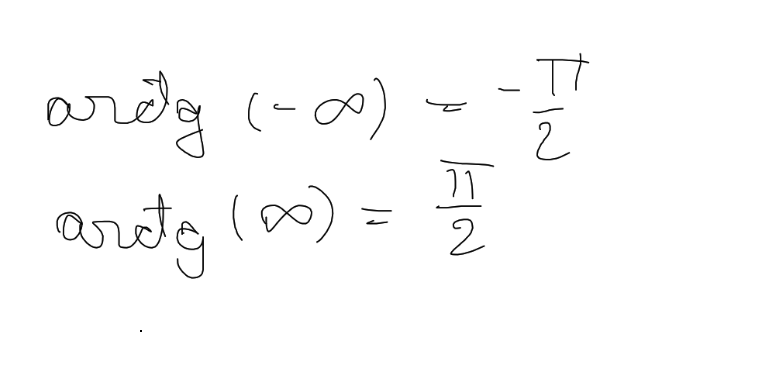 arctg (-∞) = -π/2
arctg (∞) = π/2